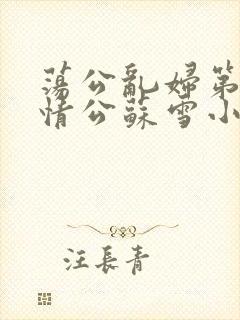 蕩公亂婦第
情公蘇雪小
汪長青